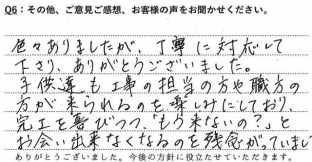 Q6：その他、ご意見ご感想、お客様の声をお聞かせください。
色々ありましたが、丁寧に対応して
下さり、ありがとうございました。
子供達も工事の担当の方や職方の
方が来られるのを楽しみにしており、
完工を喜びつつ「もう来ないの?」と
お会い出来なくなるのを残念がっていまし
ありがとうございました。今後の方針に役立たせていただきます